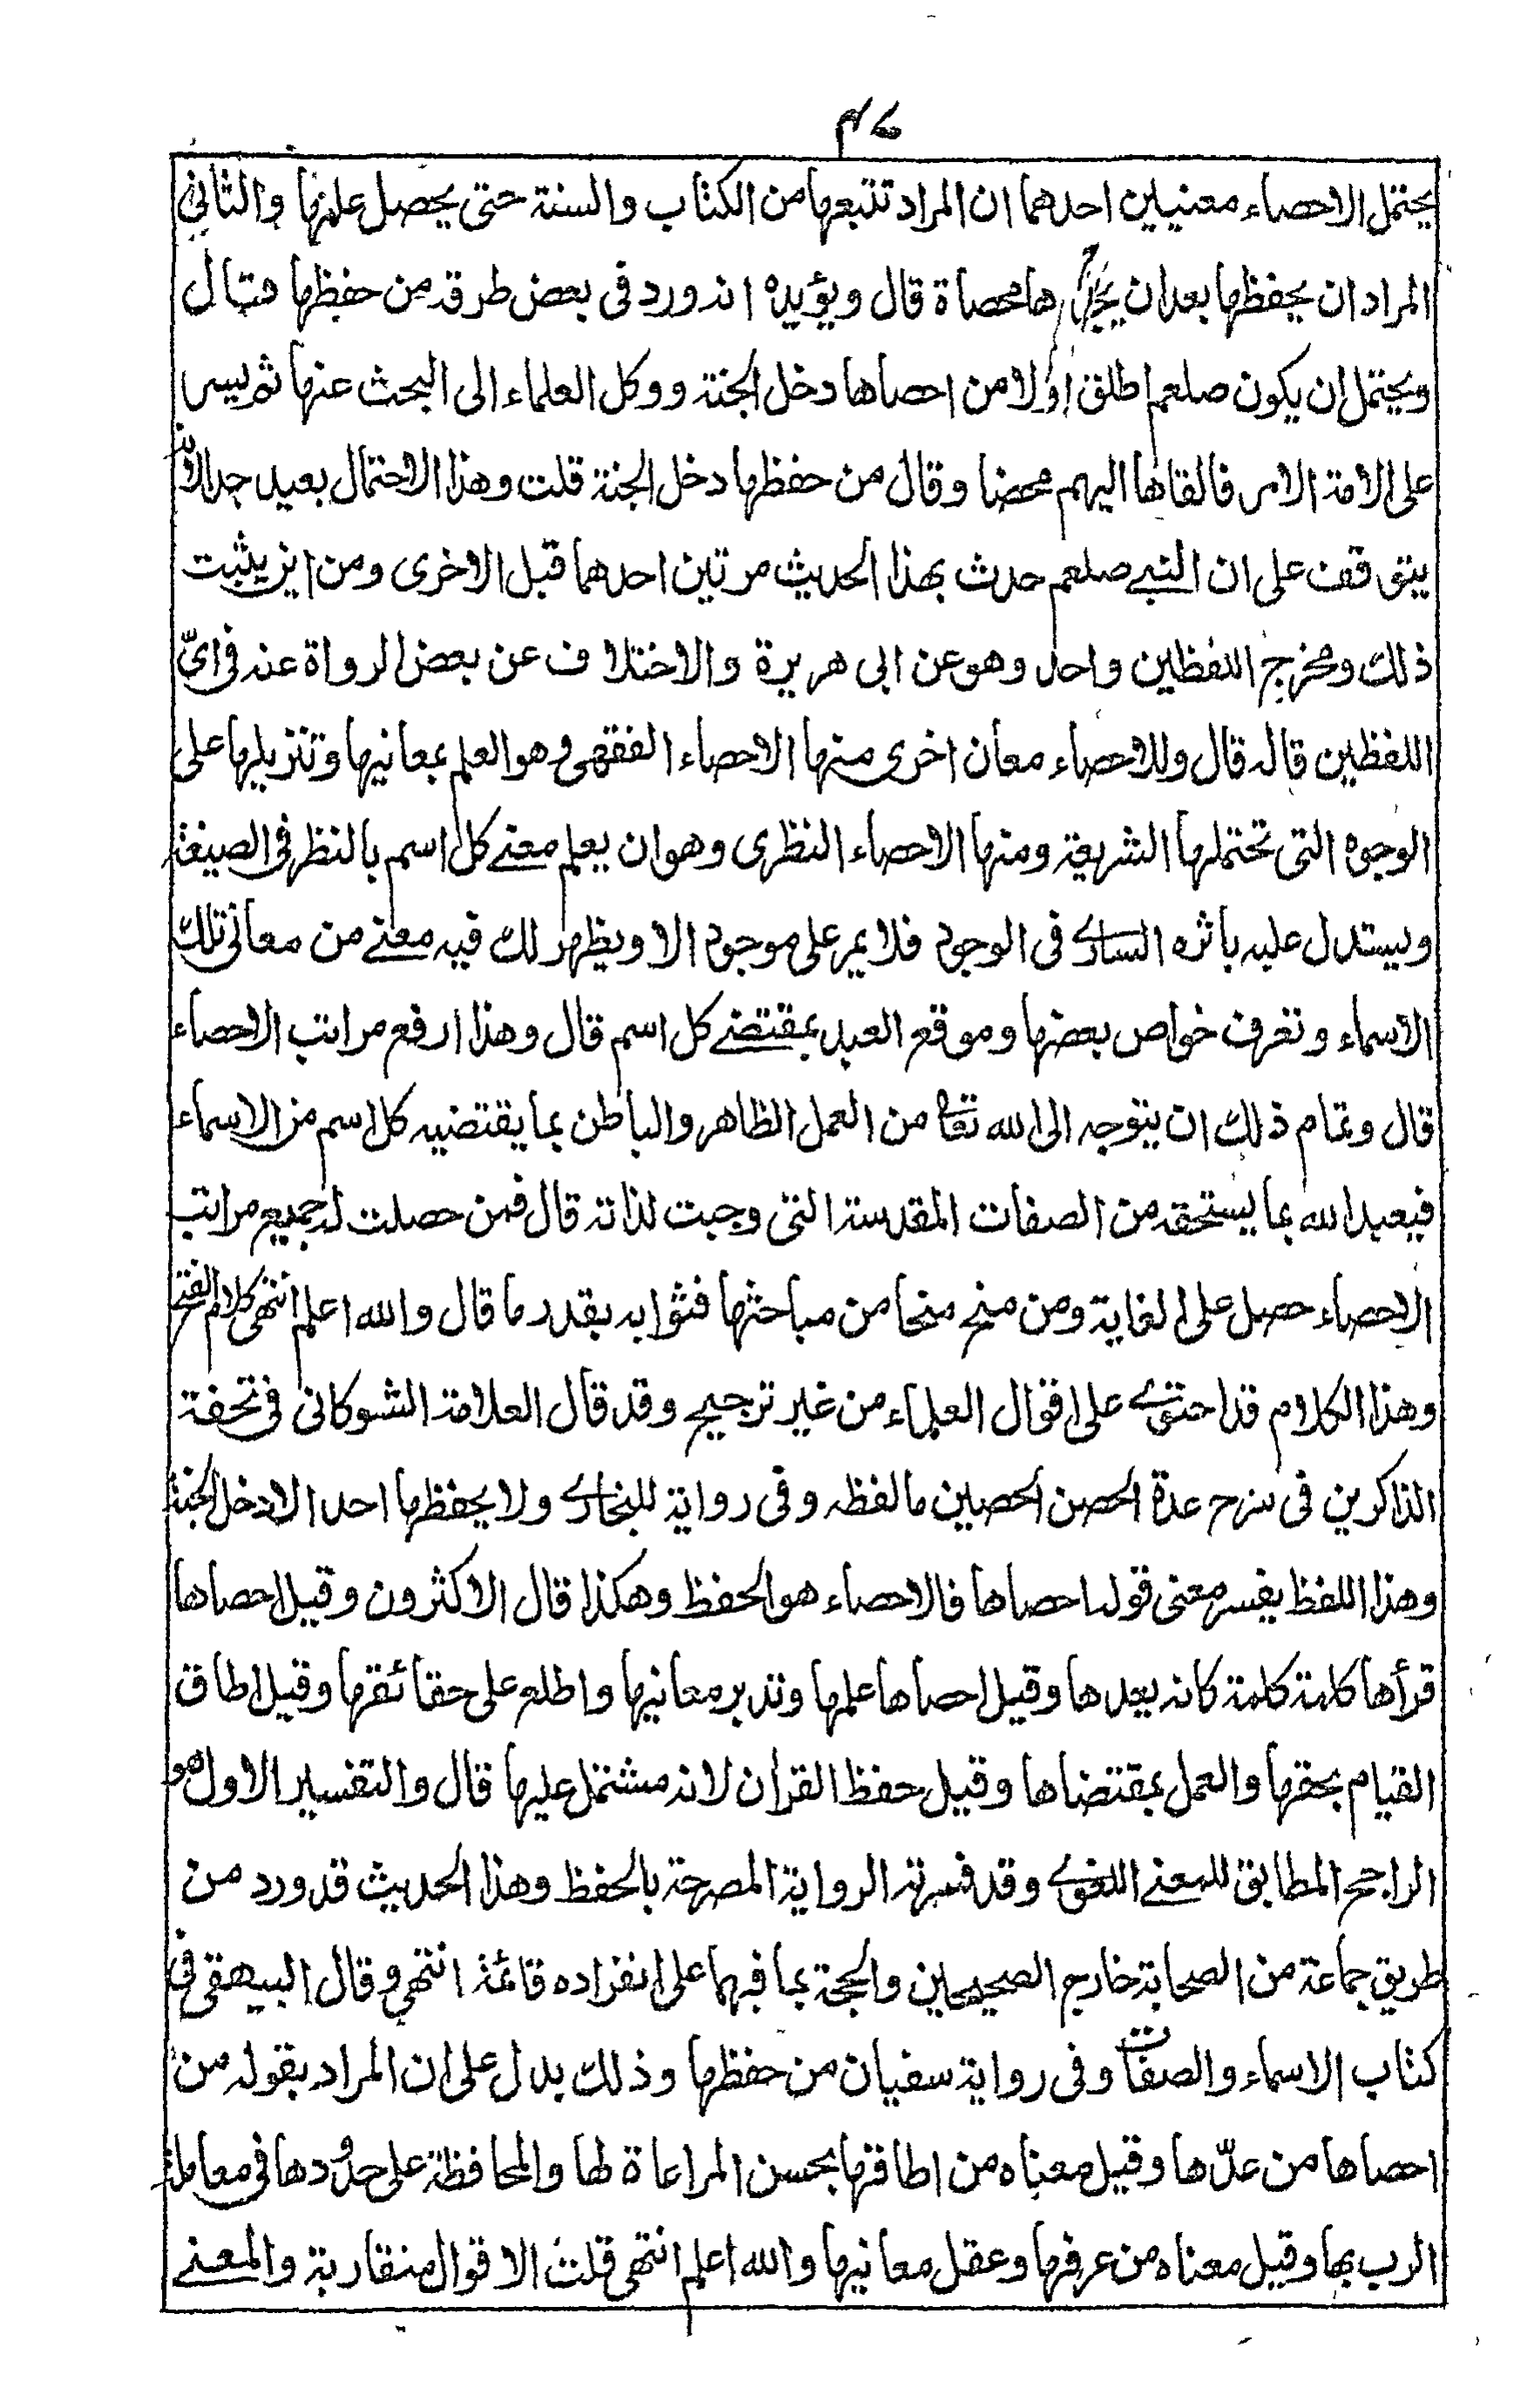 ٤٧
يحتمل الاحصاء معنيين احدهما ان المراد تتبعها من الكتاب والسنة حتى يحصل علمها والثاني
المراد ان يحفظها بعد ان يجدها محصاة قال ويؤيده انه ورد فى بعض طرقه من حفظها قال
ويحتمل ان يكون صلعم اطلق اولا من احصاها دخل الجنة ووكل العلماء الى البحث عنها ثم يسر
على الامة الامر فالقاها اليهم محضا وقال من حفظها دخل الجنة قلت وهذا الاحتمال بعيد جدا لانه
يتوقف على ان النبى صلعم حدث بهذا الحديث مرتين احدهما قبل الاخرى ومن اين يثبت
ذلك ومخرج اللفظين واحد وهو عن ابى هريرة والاختلاف عن بعض الرواة عنه فى اىّ
اللفظين قاله قال وللاحصاء معان اخرى منها الاحصاء الفقهى وهو العلم بمعانيها وتنزيلها على
الوجوه التى تحتملها الشريعة ومنها الاحصاء النظرى وهو ان يعلم معنے كل اسم بالنظر فى الصيغة
ويستدل عليه باثره السارے فى الوجود فلا يمر على موجود الا ويظهر لك فيه معنے من معانى تلك
الاسماء وتعرف خواص بعضها وموقع العبد بمقتضے كل اسم قال وهذا ارفع مراتب الاحصاء
قال وتمام ذلك ان يتوجه الى الله تعا من العمل الظاهر والباطن بما يقتضيه كل اسم من الاسماء
فيعبد الله بما يستحقه من الصفات المقدسة التى وجبت لذاته قال فمن حصلت له جميع مراتب
الاحصاء حصل على الغاية ومن منح منحا من مباحثها فثوابه بقدر ما قال والله اعلم انتهى كلام الفتح
وهذا الكلام قد احتوے على اقوال العلماء من غير ترجيح وقد قال العلامة الشوكانى فى تحفة
الذاكرين فى شرح عدة الحصن الحصين ما لفظه وفى رواية للبخارے ولا يحفظها احد الا دخل الجنة
وهذا اللفظ يفسر معنى قوله احصاها فالاحصاء هو الحفظ وهكذا قال الاكثرون وقيل احصاها
قرأها كلمة كلمة كانه يعدها وقيل احصاها علمها وتدبر معانيها واطلع على حقائقها وقيل اطاق
القيام بحقها والعمل بمقتضاها وقيل حفظ القران لانه مشتمل عليها قال والتفسير الاول هو
الراجح المطابق للمعنے اللغوے وقد فسرته الرواية المصرحة بالحفظ وهذا الحديث قد ورد من
طريق جماعة من الصحابة خارج الصحيحين والحجة بما فيهما على انفراده قائمة انتهى وقال البيهقى فى
كتاب الاسماء والصفات وفى رواية سفيان من حفظها وذلك يدل على ان المراد بقوله من
احصاها من عدّها وقيل معناه من اطاقها بحسن المراعاة لها والمحافظة على حدودها فى معاملة
الرب بها وقيل معناه من عرفها وعقل معانيها والله اعلم انتهى قلت الاقوال متقاربة والمعنے